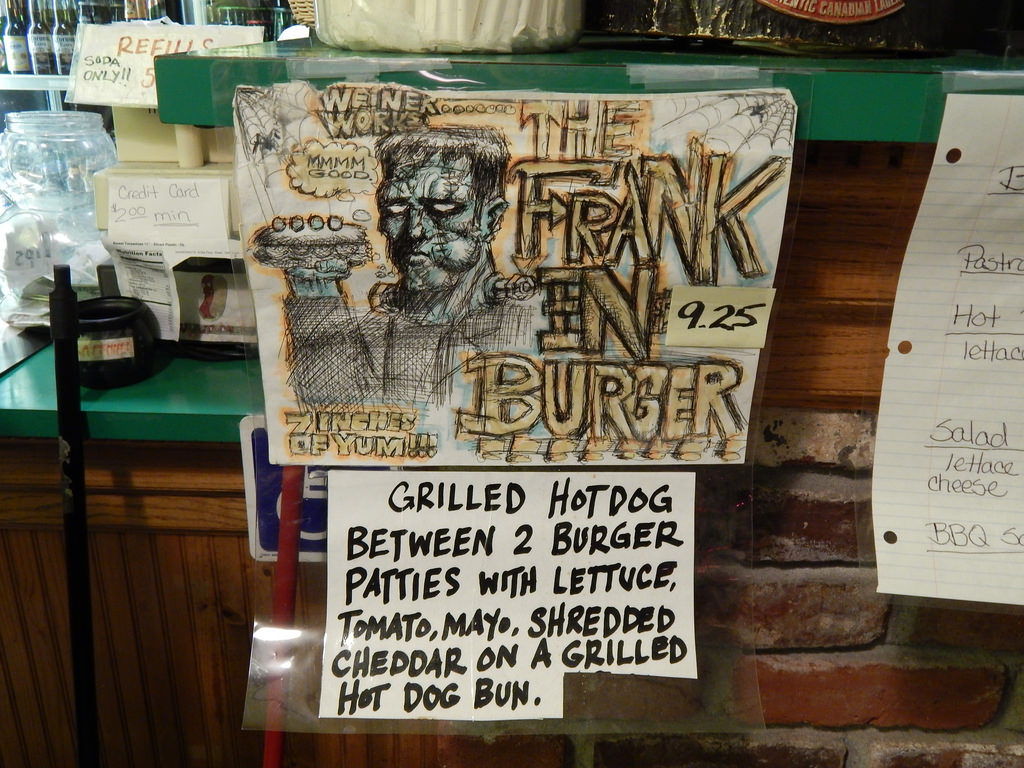 REFILLS
SODA
ONLY!!
5
AUTHENTIC CANADIAN LAGER
Credit Card
$2.00 min
Nutrition Facts
WEINER
WORKS
MMMM
GOOD.
THE
FRANK
EN
BURGER
9.25
7 INCHES
OF YUM!!!
GRILLED HOTDOG
BETWEEN 2 BURGER
PATTIES WITH LETTUCE,
TOMATO, MAYO, SHREDDED
CHEDDAR ON A GRILLED
HOT DOG BUN.
Hot
lettace
Salad
lettace
cheese
BBQ